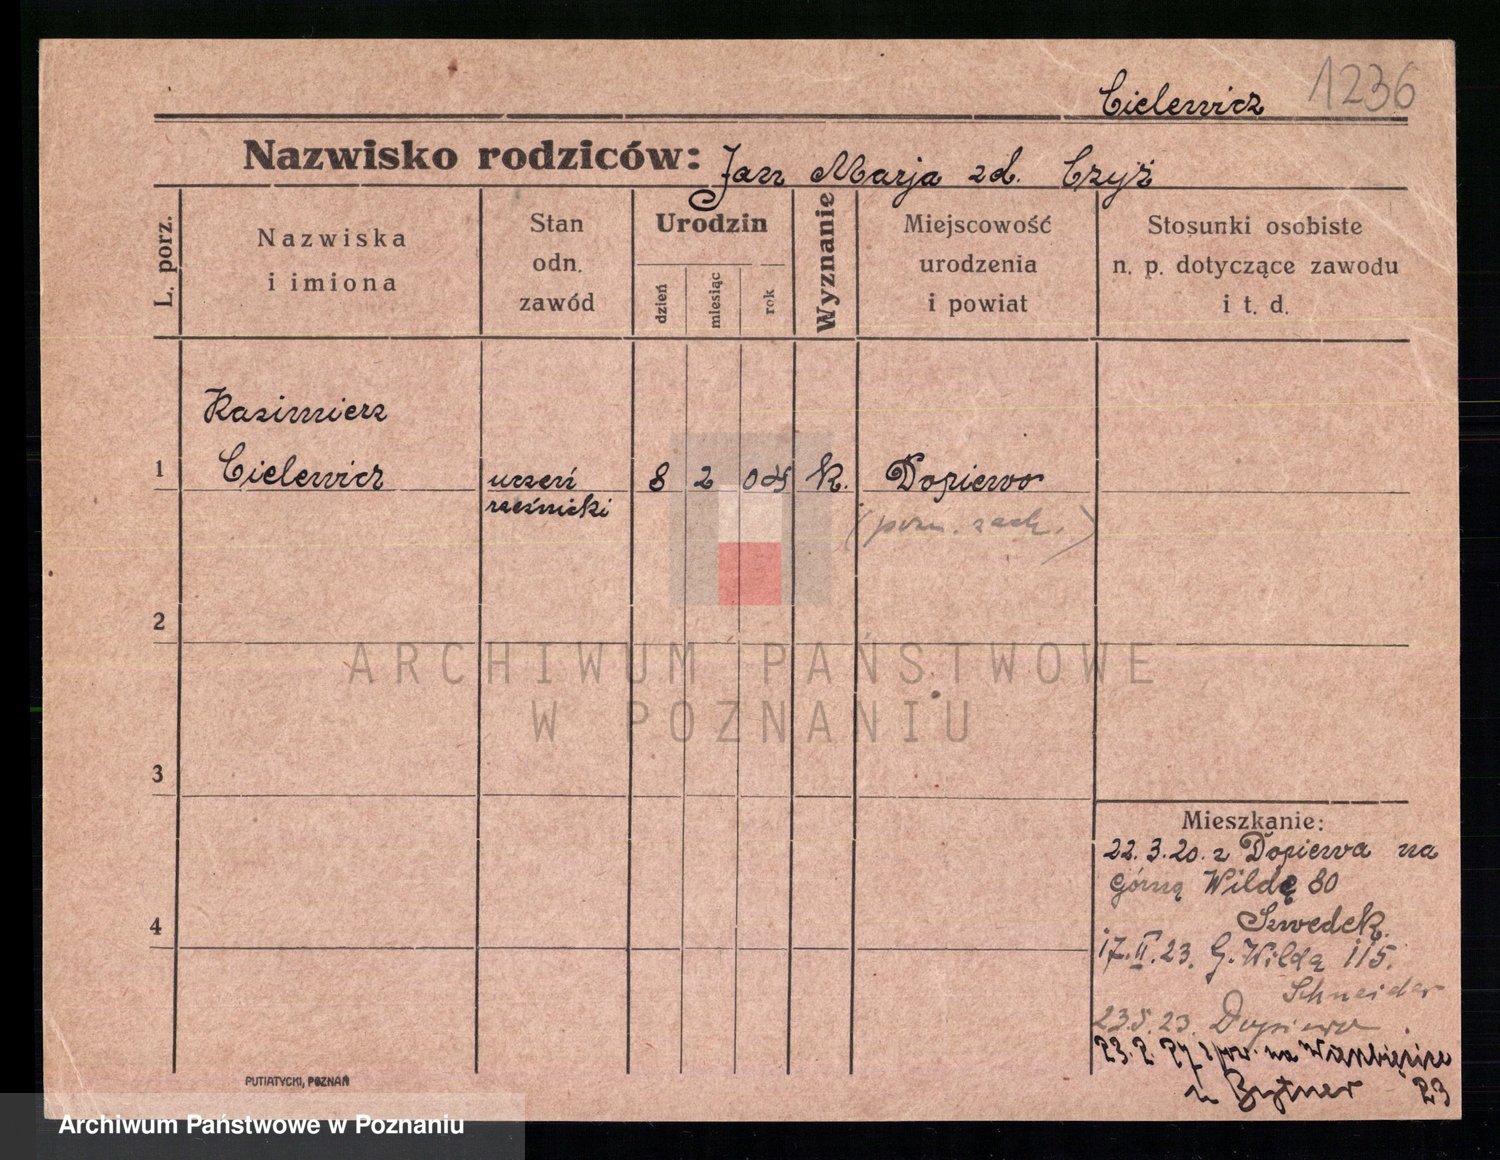 Cielewicz 1236
Nazwisko rodziców: Jan Marja zd. Czyż
L. porz.
Nazwiska
i imiona
Stan
odn.
zawód
Urodzin
dzień
miesiąc
rok
Wyznanie
Miejscowość
urodzenia
i powiat
Stosunki osobiste
n. p. dotyczące zawodu
i t. d.
Kazimierz
1 Cielewicz uczeń 8 2 05 k. Dopiewo
rzeźnicki (pozn. zach.)
2
3
4
Mieszkanie:
22.3.20. z Dopiewa na
Górną Wildę 80
Szwedek.
17.II.23. G. Wildą 115.
Schneider
23.5.23. Dopiewo
23.2.27 z pow. na Wierzbięcice
u Bytner 23
PUTIATYCKI, POZNAŃ
ARCHIWUM PAŃSTWOWE
W POZNANIU
Archiwum Państwowe w Poznaniu